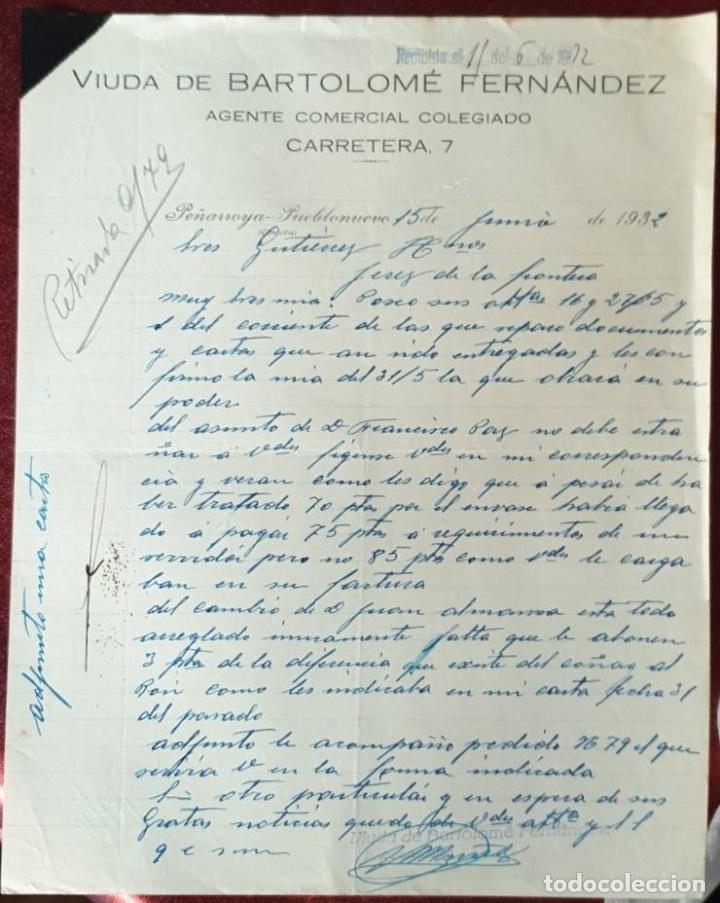 Recibida el 11 del 6 de 1932
VIUDA DE BARTOLOMÉ FERNÁNDEZ
AGENTE COMERCIAL COLEGIADO
CARRETERA, 7
Retirada
Peñarroya-Pueblonuevo 15 de Junio de 1932
Sres Gutiérrez Hnos
Jerez de la frontera
Muy Sres mios: Poseo sus attas 16 y 27/5 y
1 del corriente de las que reparo documentos
y cartas que an sido entregadas y les con
firmo la mia del 31/5 la que obrará en su
poder
del asunto de D Francisco no debe estra
ñar á Vdes fijense Vdes en mi corresponden
cia y veran como les digo que á pesar de ha
ber tratado 70 ptas por el envase habia llega
do á pagar 75 ptas á requirimentos de un
servidor pero no 85 ptas como Vdes le carga
ban en su factura
del cambio de D Juan Almansa esta todo
arreglado unicamente falta que le abonen
3 ptas de la diferencia que existe del coñac al
Ron como les indicaba en mi carta fecha 31
del pasado
adjunto le acompaño pedido Nº 79 el que
servira V en la forma indicada
Sin otro particular y en espera de sus
Gratas noticias quedo de Vdes atta y S S
q e s m
Viuda de Bartolomé Fernández
adjunto una carta
todocoleccion.net